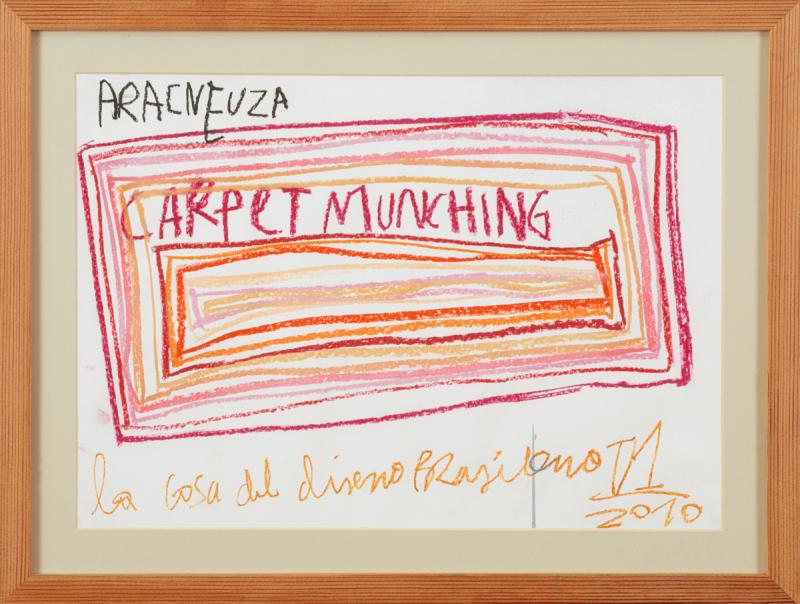 ARACNEUZA
CARPET MUNCHING
la cosa del diseno Brasileno TM
2010